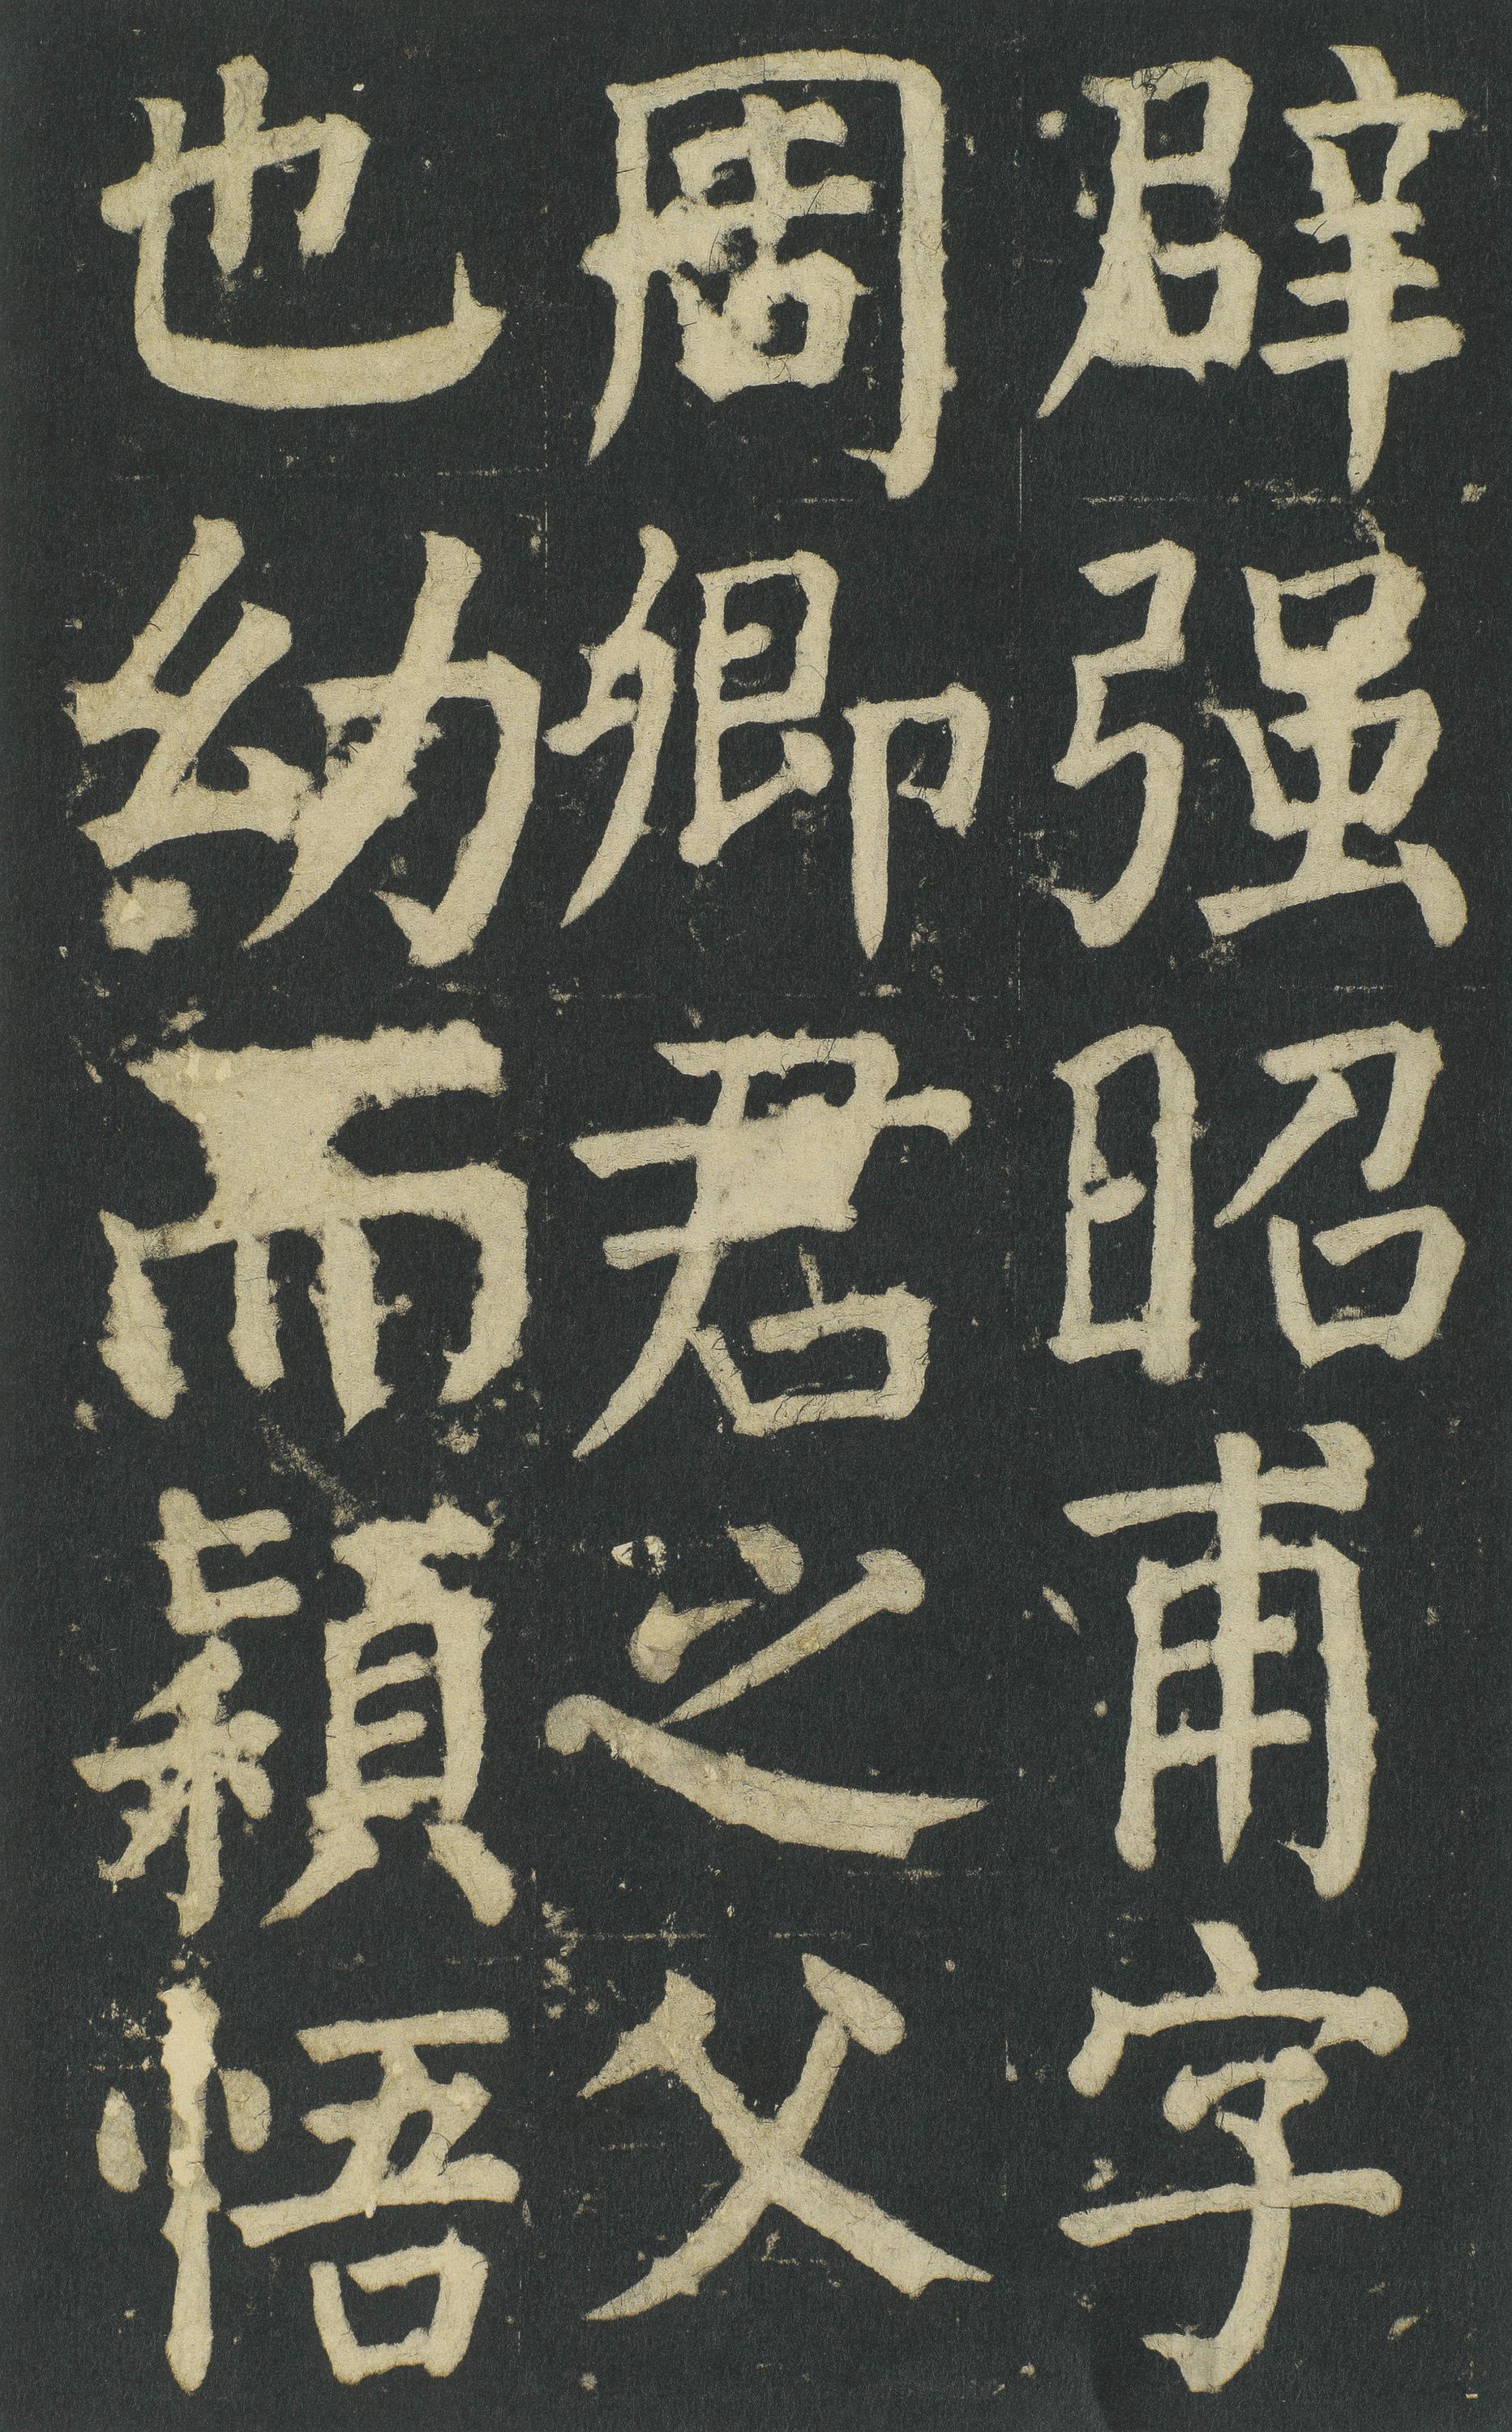 辟强昭甫字
周卿君之父
也幼而穎悟